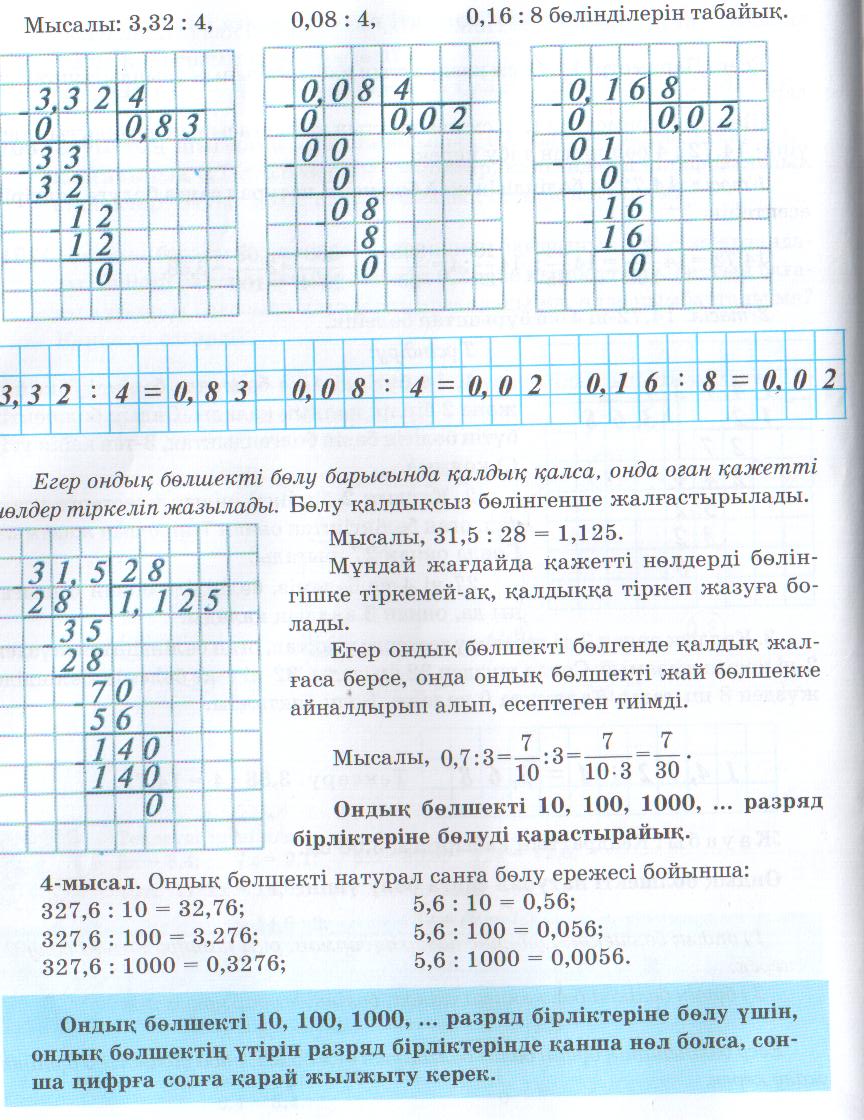 Мысалы: 3,32 : 4, 0,08 : 4, 0,16 : 8 бөлінділерін табайық.
3,32 4
0 0,83
33
32
12
12
0
0,08 4
0 0,02
00
0
08
8
0
0,16 8
0 0,02
01
0
16
16
0
3,32 : 4 = 0,83 0,08 : 4 = 0,02 0,16 : 8 = 0,02
Егер ондық бөлшекті бөлу барысында қалдық қалса, онда оған қажетті
нөлдер тіркеліп жазылады. Бөлу қалдықсыз бөлінгенше жалғастырылады.
31,5 28
28 1,125
35
28
70
56
140
140
0
Мысалы, 31,5 : 28 = 1,125.
Мұндай жағдайда қажетті нөлдерді бөлін-
гішке тіркемей-ақ, қалдыққа тіркеп жазуға бо-
лады.
Егер ондық бөлшекті бөлгенде қалдық жал-
ғаса берсе, онда ондық бөлшекті жай бөлшекке
айналдырып алып, есептеген тиімді.
Мысалы, 0,7:3=7/10:3=7/(10·3)=7/30.
Ондық бөлшекті 10, 100, 1000, ... разряд
бірліктеріне бөлуді қарастырайық.
4-мысал. Ондық бөлшекті натурал санға бөлу ережесі бойынша:
327,6 : 10 = 32,76; 5,6 : 10 = 0,56;
327,6 : 100 = 3,276; 5,6 : 100 = 0,056;
327,6 : 1000 = 0,3276; 5,6 : 1000 = 0,0056.
Ондық бөлшекті 10, 100, 1000, ... разряд бірліктеріне бөлу үшін,
ондық бөлшектің үтірін разряд бірліктерінде қанша нөл болса, сон-
ша цифрға солға қарай жылжыту керек.